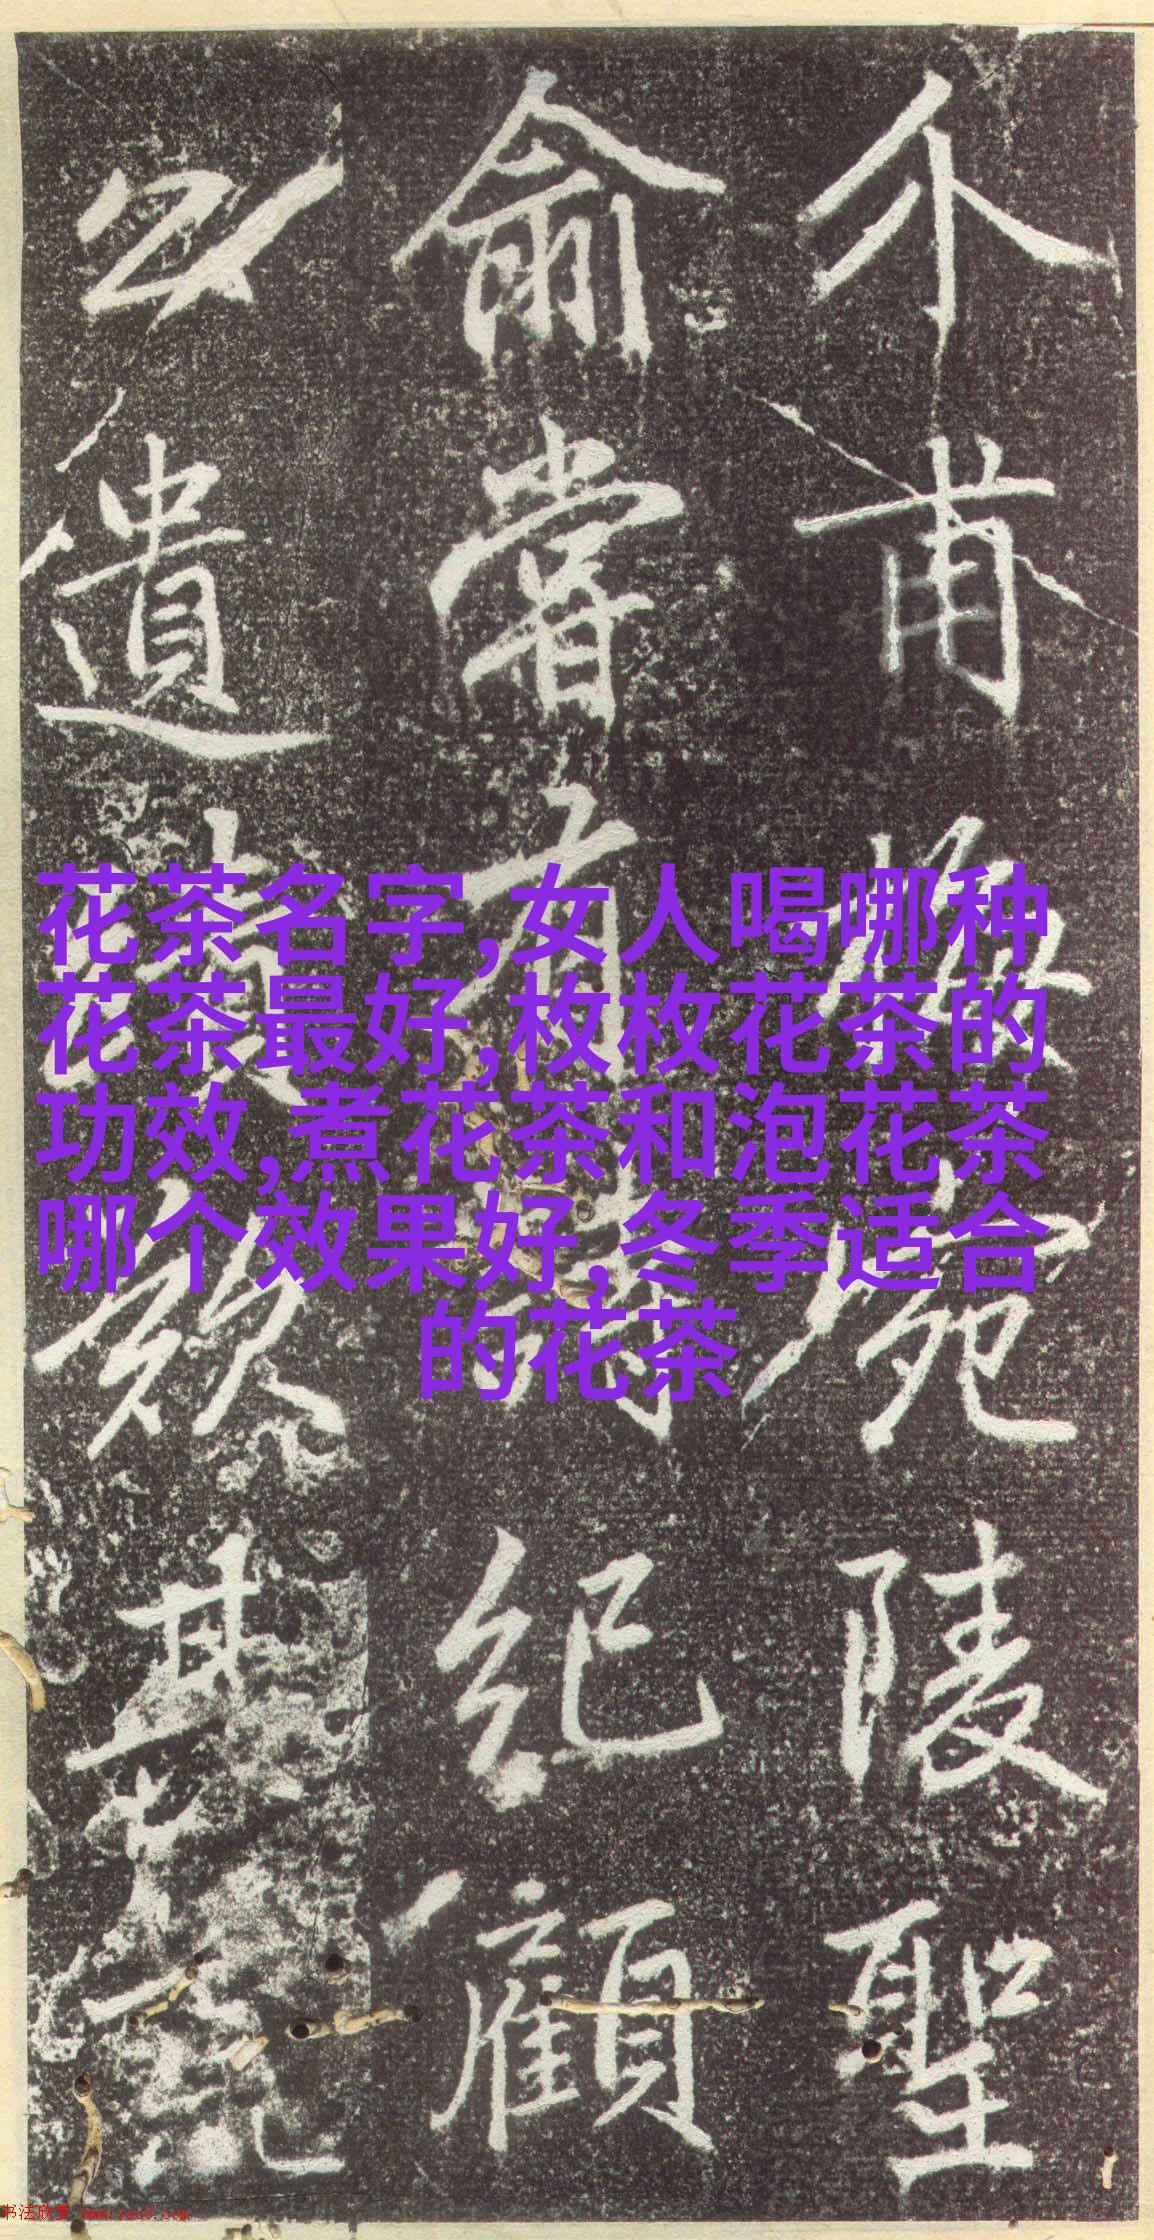 介甫宛陵聖
俞嘗有詩紀顧
公遺其
花茶名字,女人喝哪种
花茶最好,枚枚花茶的
功效,煮花茶和泡花茶
哪个效果好,冬季适合
的花茶
书法欣赏 www.yac8.com